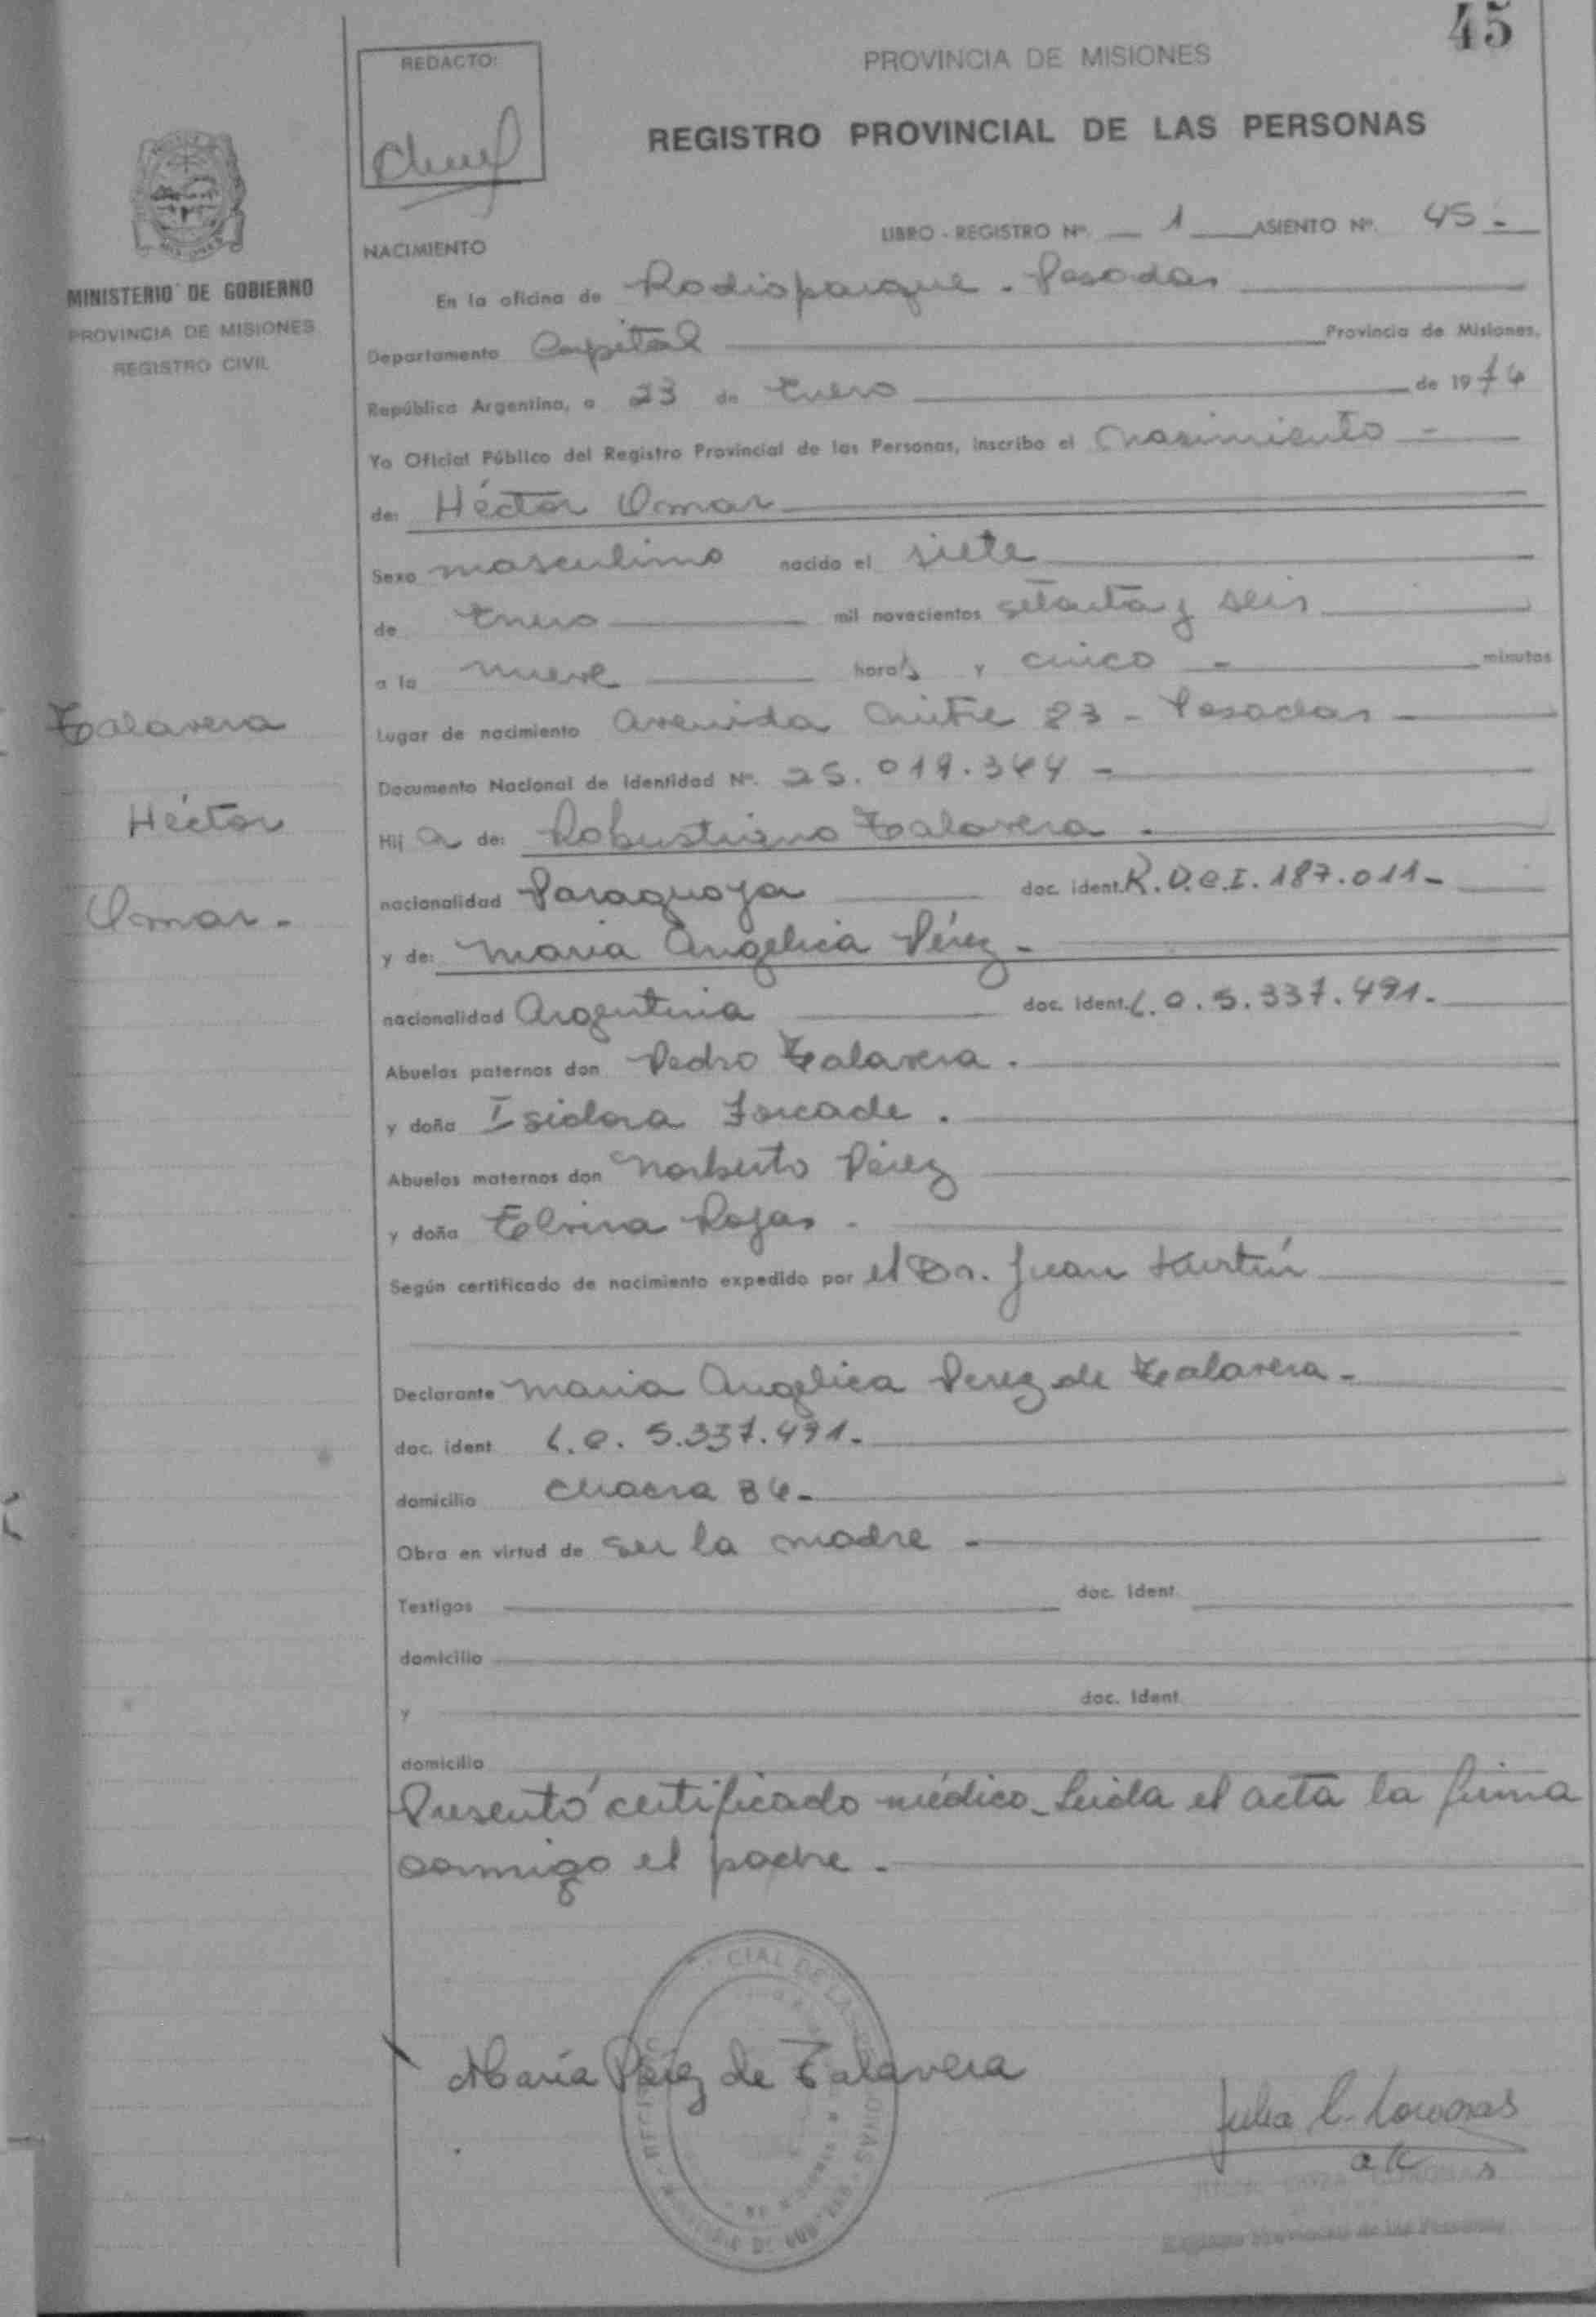 45
REDACTO:
PROVINCIA DE MISIONES
REGISTRO PROVINCIAL DE LAS PERSONAS
LIBRO - REGISTRO Nº. 1 ASIENTO Nº. 45.-
NACIMIENTO
MINISTERIO DE GOBIERNO
PROVINCIA DE MISIONES
REGISTRO CIVIL
En la oficina de Radioparque - Posadas
Departamento Capital Provincia de Misiones,
República Argentina, a 23 de Enero de 1976
Yo Oficial Público del Registro Provincial de las Personas, inscribo el Nacimiento -
de: Héctor Omar
Sexo masculino nacido el siete
de Enero mil novecientos setenta y seis
a la nueve horas y cinco - minutos
Talavera
Héctor
Omar.-
Lugar de nacimiento Avenida Mitre 23 - Posadas
Documento Nacional de Identidad Nº. 25.019.344 -
Hij o de: Robustiano Talavera -
nacionalidad Paraguaya doc. ident. R.D.C.I. 187.011-
y de: Maria Angelica Pérez -
nacionalidad Argentina doc. ident. L.C. 5.337.491.
Abuelos paternos don Pedro Talavera .
y doña Isidora Forcade .
Abuelos maternos don Norberto Pérez
y doña Elvira Rojas .
Según certificado de nacimiento expedido por el Dr. Juan Kurtin
Declarante Maria Angelica Perez de Talavera -
doc. ident L.C. 5.337.491.
domicilio Chacra 86-
Obra en virtud de ser la madre -
Testigos doc. ident
domicilio
y doc. ident
domicilio
Presentó certificado médico - Leida el acta la firma
conmigo el padre .
María Pérez de Talavera